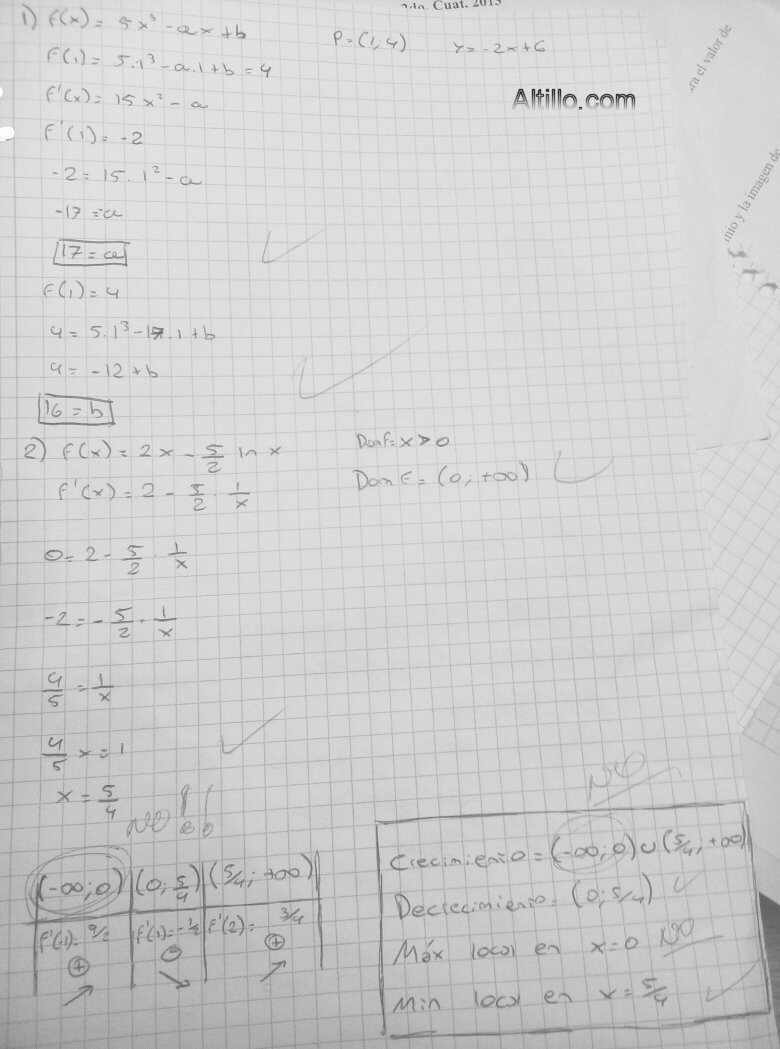 2do. Cuat. 2013
1) f(x) = 5x³ - ax + b
P = (1, 4)   y = -2x + 6
f(1) = 5.1³ - a.1 + b = 4
Altillo.com
f'(x) = 15x² - a
f'(1) = -2
-2 = 15.1² - a
-17 = -a
17 = a
f(1) = 4
4 = 5.1³ - 17.1 + b
4 = -12 + b
16 = b
2) f(x) = 2x - 5/2 ln x
Domf = x > 0
f'(x) = 2 - 5/2 . 1/x
Dom f = (0; +∞)
0 = 2 - 5/2 . 1/x
-2 = -5/2 . 1/x
4/5 = 1/x
4/5 x = 1
x = 5/4
NO
(-∞; 0) | (0; 5/4) | (5/4; +∞)
f'(-1) = 9/2 | f'(1) = -1/2 | f'(2) = 3/4
⊕ ↗ | ⊖ ↘ | ⊕ ↗
NO
Crecimiento = (-∞; 0) ∪ (5/4; +∞)
Decrecimiento = (0; 5/4)
Máx local en x = 0 NO
Min local en x = 5/4
ra el valor de
nio y la imagen de